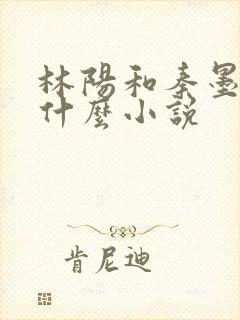 林陽和秦墨
什麼小説
肯尼迪